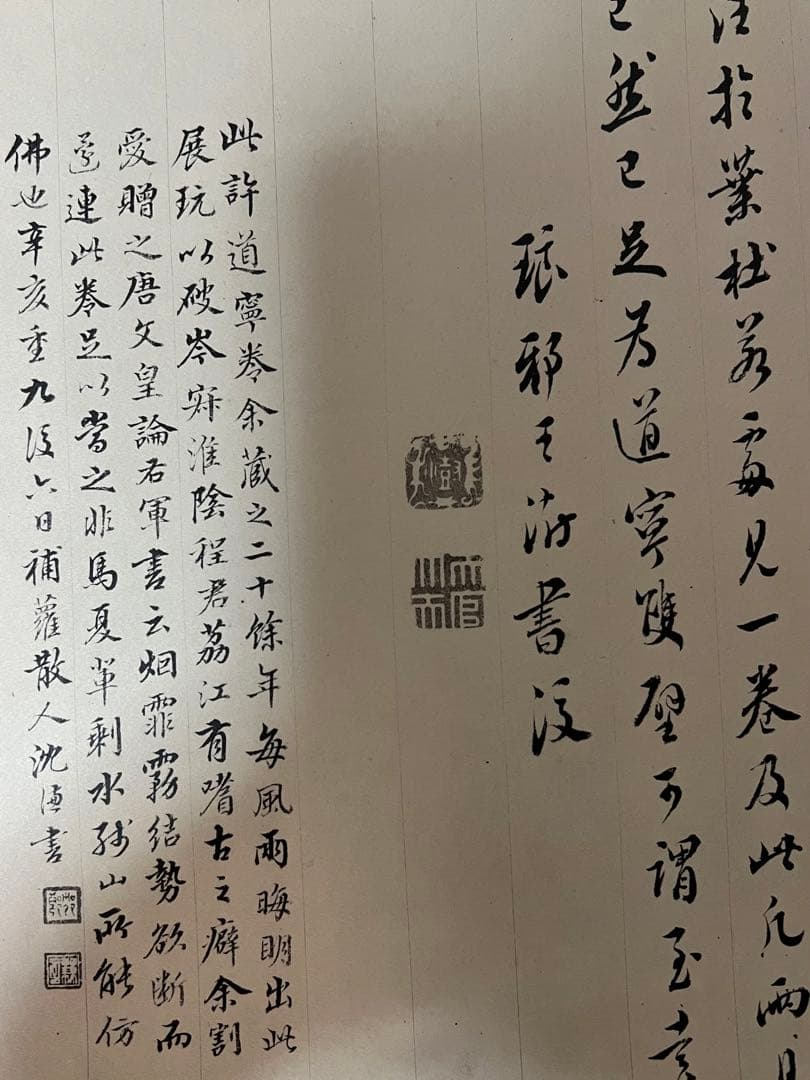 注於業杜若處見一卷及此凡兩見
已然已足為道寧雙璧可謂至幸
琅邪王澍書後
此許道寧卷余藏之二十餘年每風雨晦明出此
展玩以破岑寂淮陰程君荔江有嗜古之癖余割
愛贈之唐文皇論右軍書云烟霏霧結勢欲斷而
還連此卷足以當之非馬夏軰剩水殘山所能仿
佛也辛亥重九後六日補蘿散人沈書